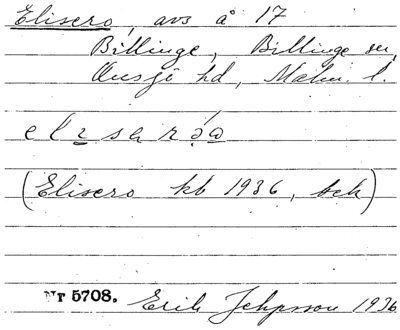 Elisero, avs å 17
Billinge, Billinge sn,
Onsjö hd, Malm. l.
elisarə́a
(Elisero kb 1936, tck)
Nr 5708. Erik Jeppsson 1936